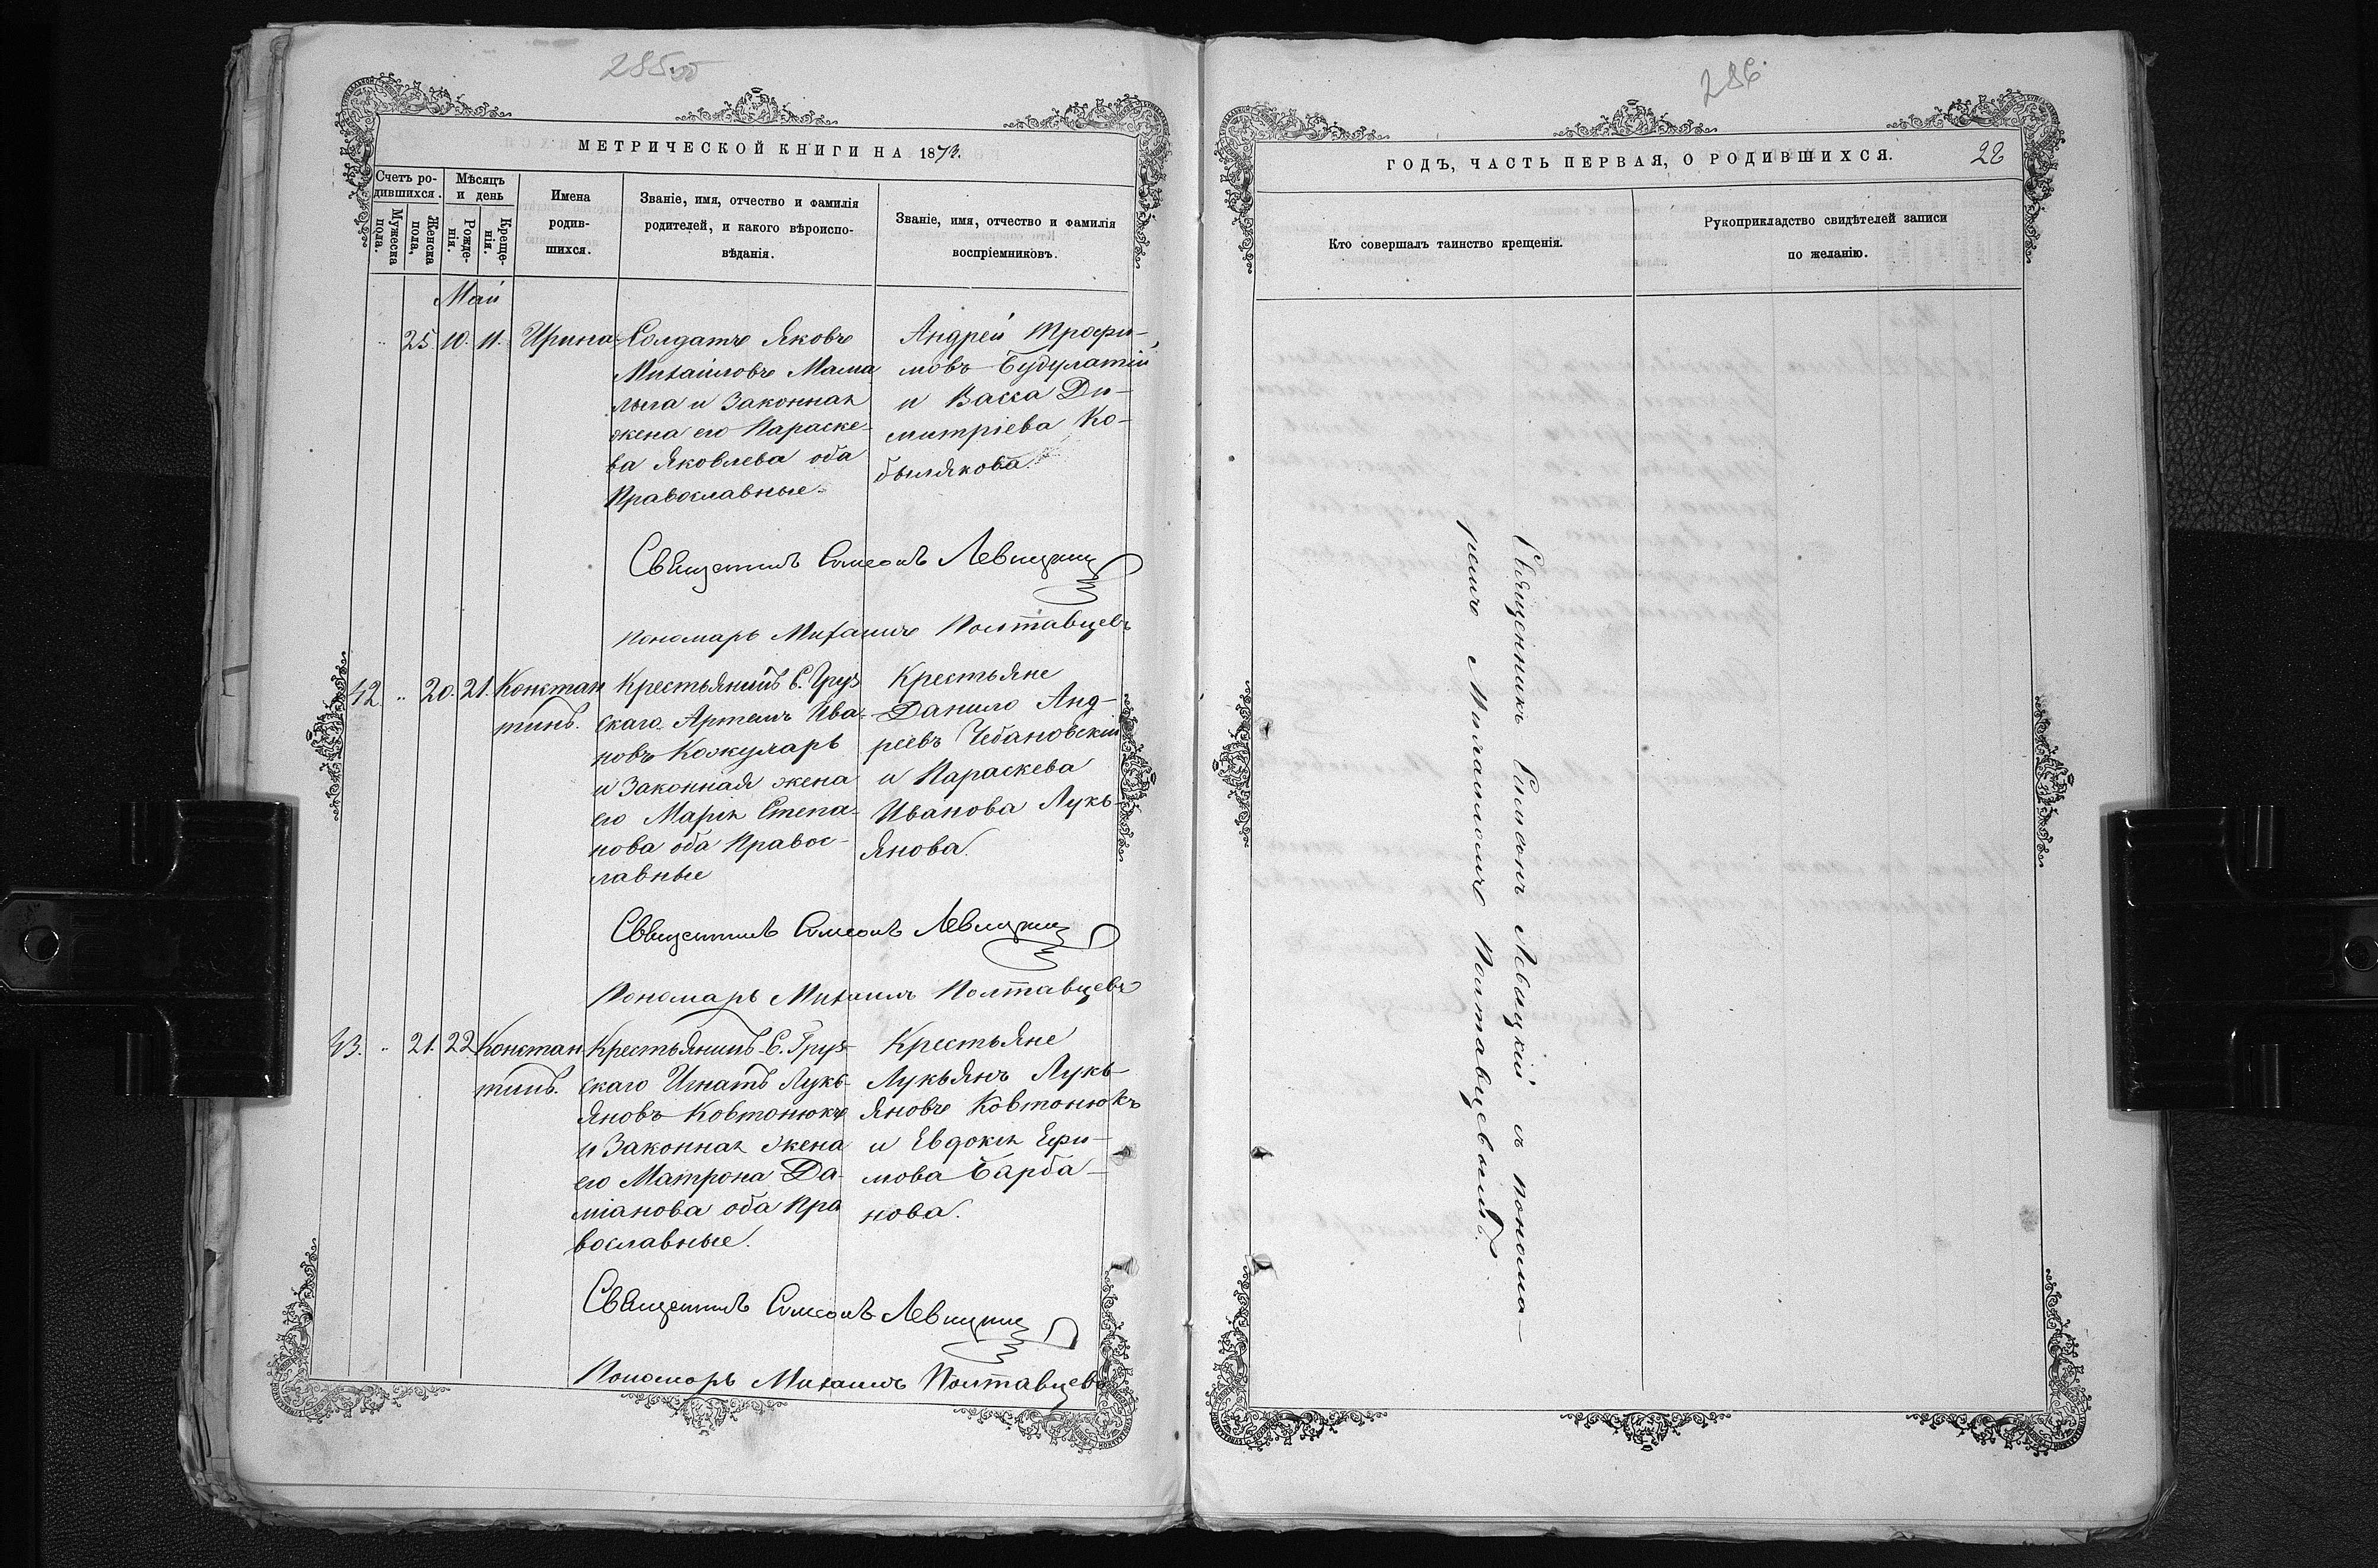 285об
МЕТРИЧЕСКОЙ КНИГИ НА 1873.
Счетъ ро-
дившихся.
Мѣсяцъ
и день
Мужеска
пола.
Женска
пола,
Рожде-
нія.
Креще-
нія.
Имена
родив-
шихся.
Званіе, имя, отчество и фамилія
родителей, и какого вѣроиспо-
вѣданія.
Званіе, имя, отчество и фамилія
воспріемниковъ.
Май
25. 10. 11. Ирина
Солдатъ Яковъ
Михаиловъ Мама
лыга и Законная
жена его Параске-
ва Яковлева оба
Православные.
Андрей Трофи-
мовъ Будулатій
и Васса Ди-
митріева Ко-
былякова.
Священникъ Симеонъ Левицкий
Пономарь Михаилъ Полтавцевъ
42 20. 21. Констан
тинъ.
Крестьянинъ С. Груз
скаго Артемъ Ива-
новъ Кожуларь
и Законная жена
его Марія Степа-
нова оба Правос-
лавные
Крестьяне
Данило Анд-
реевъ Чебановскій
и Параскева
Иванова Лукь-
янова.
Священникъ Симеонъ Левицкий
Пономарь Михаилъ Полтавцевъ
43. 21. 22. Констан
тинъ.
Крестьянинъ С. Груз-
скаго Игнатъ Лукь-
яновъ Ковтонюкъ
и Законная жена
его Матрона Да-
міанова оба Пра
вославные.
Крестьяне
Лукьянъ Лукь-
яновъ Ковтонюкъ
и Евдокія Ефи-
мова Барба-
нова.
Священникъ Симеонъ Левицкий
Пономарь Михаилъ Полтавцевъ
286.
ГОДЪ, ЧАСТЬ ПЕРВАЯ, О РОДИВШИХСЯ.
28
Кто совершалъ таинство крещенія.
Рукоприкладство свидѣтелей записи
по желанію.
Священникъ Симеонъ Левицкій съ понома-
ремъ Михаиломъ Полтавцевымъ.